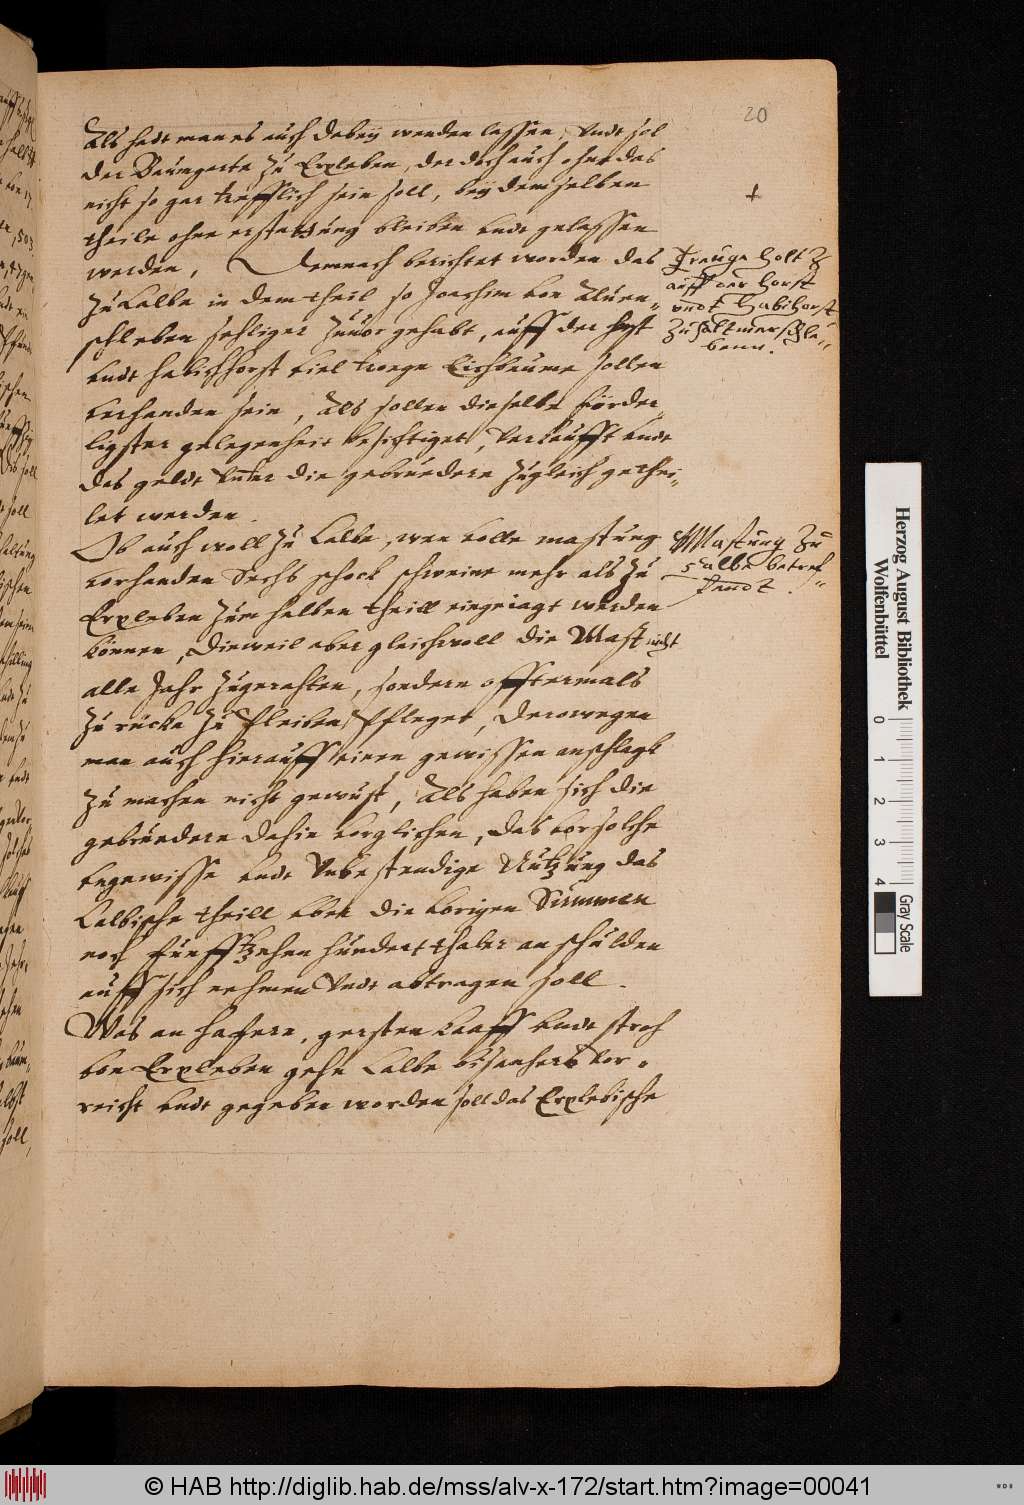 20
Als hadt man es auch dabeÿ wenden lassen, Undt sol
der Baumgarte zu Erxleben, der doch auch ohne das
nicht so gar trefflich sein soll, beÿ dem selben
theile ohne erstattung bleiben undt gelassen
werden, Demnach berichtet worden das
zu Calbe in dem theil so Joachim von Aluen-
schleben sehliger zuuor gehabt, auff der horst
undt habichhorst viel treuge Eichbeume sollen
verhanden sein, Als sollen dieselbe förder
ligster gelegenheit besichtiget, Verkaufft undt
das geldt Unter die gebruedere zugleich gethei-
let werden.
Treuge Holtz
auff der Horst
undt Habichorst
zu
benn.
Ob auch woll zu Calbe, wen volle mastung
vorhanden Sechs schock schweine mehr als zu
Erxleben zum halben theill eingejagt werden
können, Dieweil aber gleichwoll die Mast nicht
alle Jahr zugerahten, sondern offtermals
zu rücke zu bleiben Pfleget, Derowegen
man auch hierauff einen gewissen anschlagk
zu machen nicht gewust, Als haben sich die
gebruedere dahin verglichen, das vor solche
ungewisse undt Unbestendige Nutzung das
Calbische theill uber die vbrigen Summen
noch funfftzehen hundert thaler an schulden
auff sich nehmen Undt abtragen soll.
Mastung zu
Calbe betref-
fendt.
Was an hafern, gersten kaaff undt stroh
von Erxleben gehn Calbe bisanhero vor-
reicht undt gegeben worden soll das Erxlebische
Herzog August Bibliothek
Wolfenbüttel
0 1 2 3 4
Gray Scale
© HAB http://diglib.hab.de/mss/alv-x-172/start.htm?image=00041